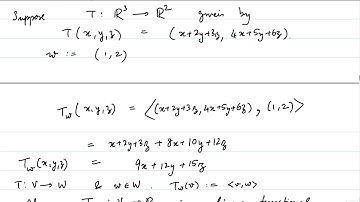 Suppose T: ℝ³ → ℝ² given by
T(x,y,z) = (x+2y+3z, 4x+5y+6z)
w := (1,2)
T_w(x,y,z) = ⟨(x+2y+3z, 4x+5y+6z), (1,2)⟩
= x+2y+3z + 8x+10y+12z
T_w(x,y,z) = 9x+12y+15z
T: V → W & w∈W. T_w(v) := ⟨v,w⟩